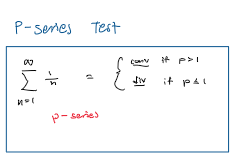 P-series Test
∞
∑ 1/n = { conv if p>1
div if p≤1
n=1
p-series